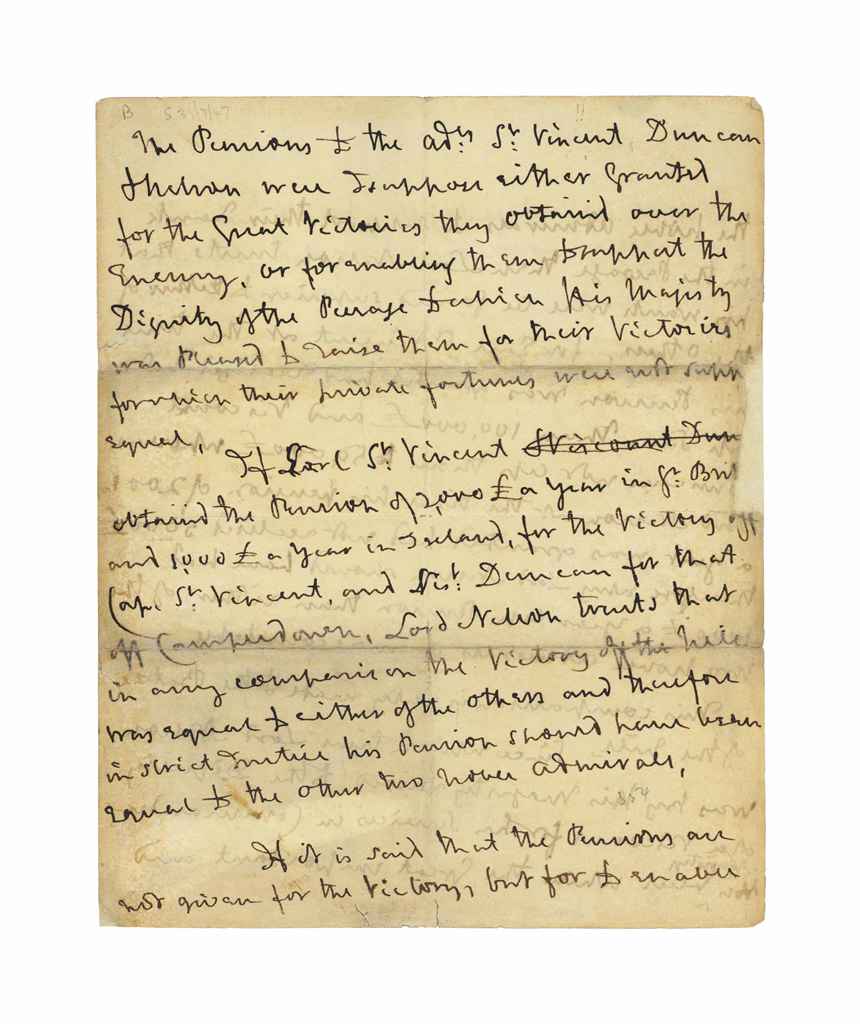 B
The Pensions to the adms St. Vincent, Duncan
& Nelson were I suppose either Granted
for the Great Victories they obtaind over the
Enemy, or for enabling them to support the
Dignity of the Peerage to which His Majesty
was Pleased to raise them for their Victories
for which their private fortunes were not supp
equal,
If Earl St. Vincent & Viscount Dun
obtaind the Pension of 2,000 £ a year in Gt. Brit
and 1,000 £ a year in Ireland, for the Victory off
Cape St. Vincent, and Vist. Duncan for that
off Camperdown, Lord Nelson trusts that
in any comparison the Victory off the Nile
was equal to either of the others and therefore
in strict Justice his Pension should have been
equal to the other two noble admirals,
If it is said that the Pensions are
not given for the Victorys, but for to enable